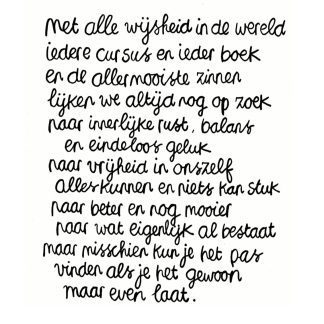 met alle wijsheid in de wereld
iedere cursus en ieder boek
en de allermooiste zinnen
lijken we altijd nog op zoek
naar innerlijke rust, balans
en eindeloos geluk
naar vrijheid in onszelf
alles kunnen en niets kan stuk
naar beter en nog mooier
naar wat eigenlijk al bestaat
maar misschien kun je het pas
vinden als je het gewoon
maar even laat.